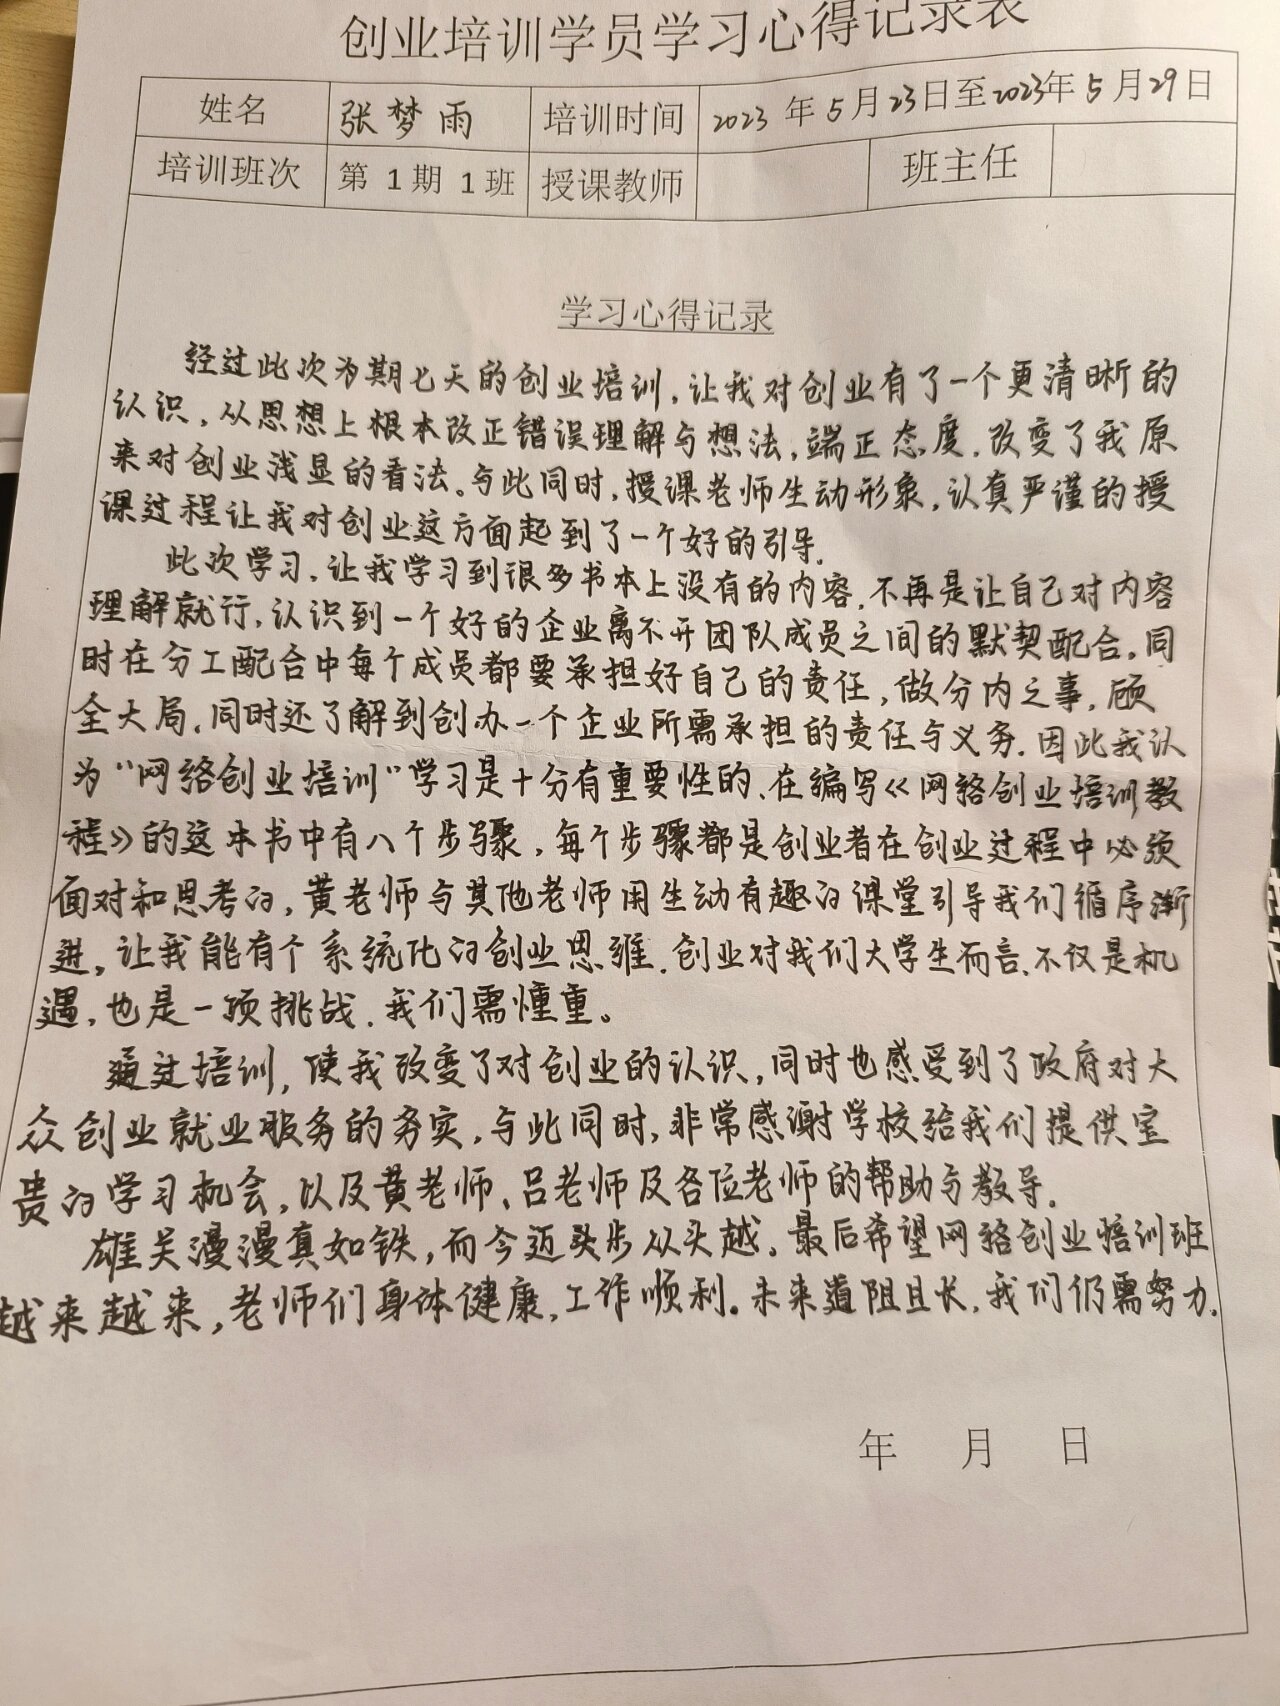 创业培训学员学习心得记录表
姓名 张梦雨 培训时间 2023 年 5 月 23日至2023年 5 月 29 日
培训班次 第 1 期 1 班 授课教师 班主任
学习心得记录
经过此次为期七天的创业培训,让我对创业有了一个更清晰的
认识,从思想上根本改正错误理解与想法,端正态度.改变了我原
来对创业浅显的看法。与此同时,授课老师生动形象,认真严谨的授
课过程让我对创业这方面起到了一个好的引导.
此次学习,让我学习到很多书本上没有的内容.不再是让自己对内容
理解就行,认识到一个好的企业离不开团队成员之间的默契配合。同
时在分工配合中每个成员都要承担好自己的责任,做分内之事,顾
全大局.同时还了解到创办一个企业所需承担的责任与义务.因此我认
为“网络创业培训”学习是十分有重要性的、在编写《网络创业培训教
程》的这本书中有八个步骤,每个步骤都是创业者在创业过程中必须
面对和思考的,黄老师与其他老师用生动有趣的课堂引导我们循序渐
进,让我能有个系统化的创业思维.创业对我们大学生而言、不仅是机
遇,也是一项挑战.我们需慬重。
通过培训,使我改变了对创业的认识,同时也感受到了政府对大
众创业就业服务的务实,与此同时,非常感谢学校给我们提供宝
贵的学习机会,以及黄老师、吕老师及各位老师的帮助与教导.
雄关漫漫真如铁,而今迈头步从头越。最后希望网络创业培训班
越来越来,老师们身体健康,工作顺利。未来道阻且长,我们仍需努力.
年 月 日